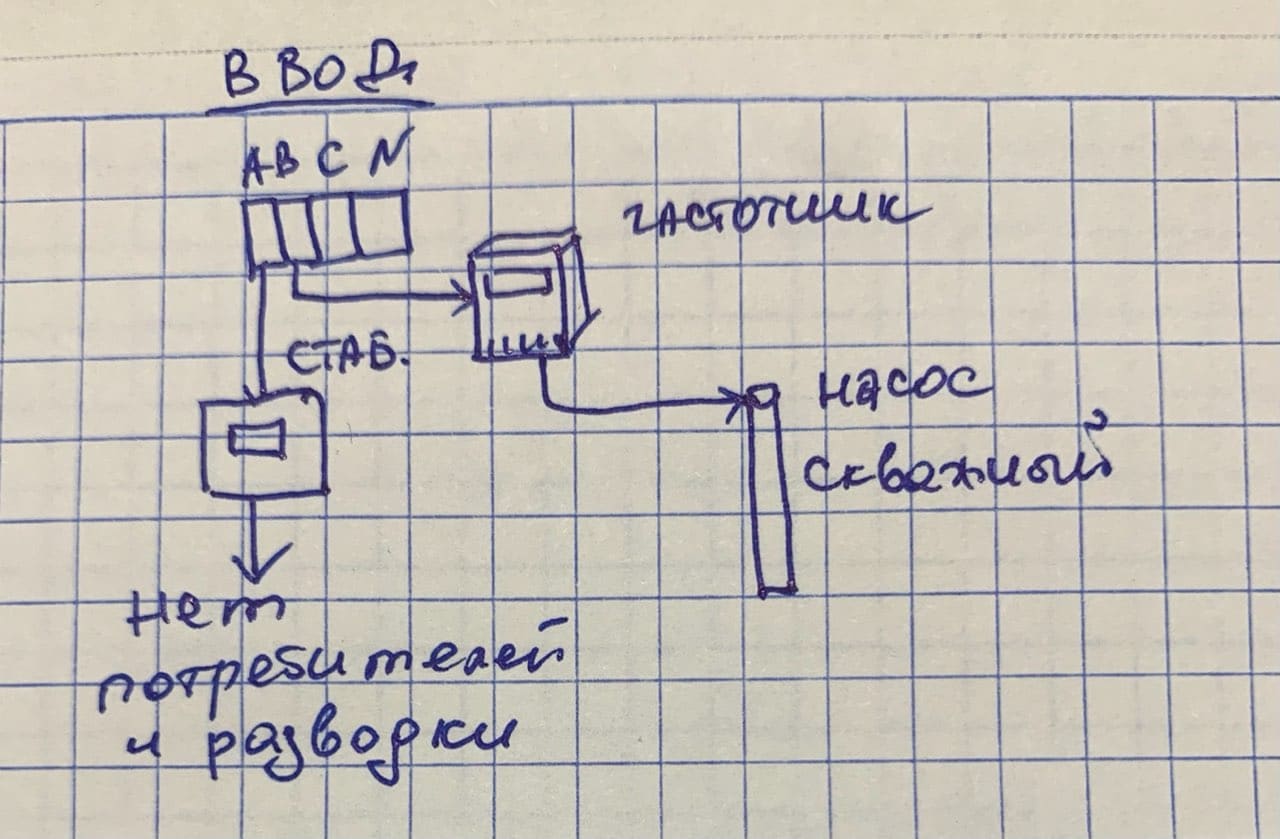 ВВОД
А В С N
частотник
СТАБ.
насос
скважный
Нет
потребителей
и разводки